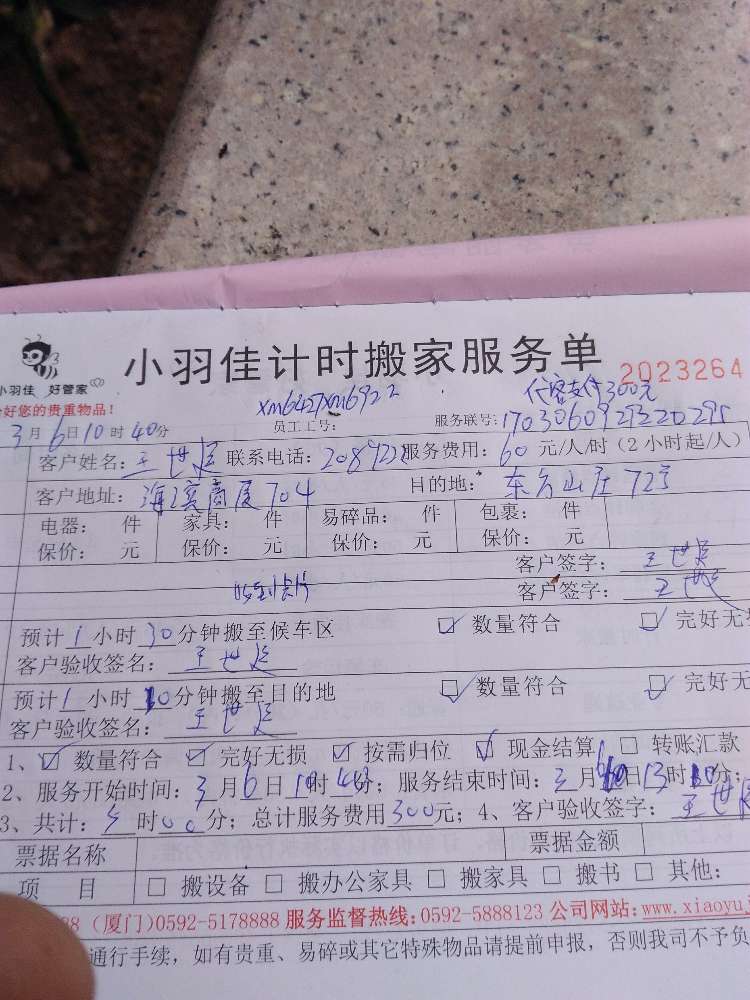 小羽佳 好管家
小羽佳计时搬家服务单 2023264
好您的贵重物品！
代客支付300元
3月6日10时40分 员工工号：xm6427xm6922 服务联号：
客户姓名：王世 联系电话： 服务费用：60元/人/时（2小时起/人）
客户地址：海滨商厦704 目的地：东方山庄72号
电器： 件 家具： 件 易碎品： 件 包裹： 件
保价： 元 保价： 元 保价： 元 保价： 元
客户签字：王世
收到卡片 客户签字：王世
预计1小时30分钟搬至候车区 ☑数量符合 ☑完好无
客户验收签名：王世
预计1小时10分钟搬至目的地 ☑数量符合 ☑完好无
客户验收签名：王世
1、☑数量符合 ☑完好无损 ☑按需归位 ☑现金结算 □转账汇款
2、服务开始时间：3月6日10时4分；服务结束时间：3月6日13时分；
3、共计：3时00分；总计服务费用300元；4、客户验收签字：王世
票据名称 票据金额
项 目 □搬设备 □搬办公家具 □搬家具 □搬书 □其他：
88（厦门）0592-5178888 服务监督热线：0592-5888123 公司网站：www.xiaoyu
通行手续，如有贵重、易碎或其它特殊物品请提前申报，否则我司不予负